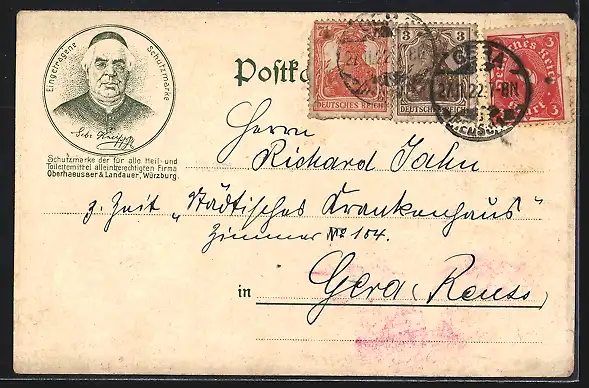 Eingetragene Schutzmarke
Seb. Kneipp
Schutzmarke der für alle Heil- und
Toilettemittel alleinberechtigten Firma
Oberhaeusser & Landauer, Würzburg.
Postka
3 3
DEUTSCHES REICH
DEUTSCHES REICH
GERA
27.11.22
3 3
Herrn
Richard Jahn
z. Zeit „Städtisches Krankenhaus"
Zimmer No 104.
in Gera (Reuss)